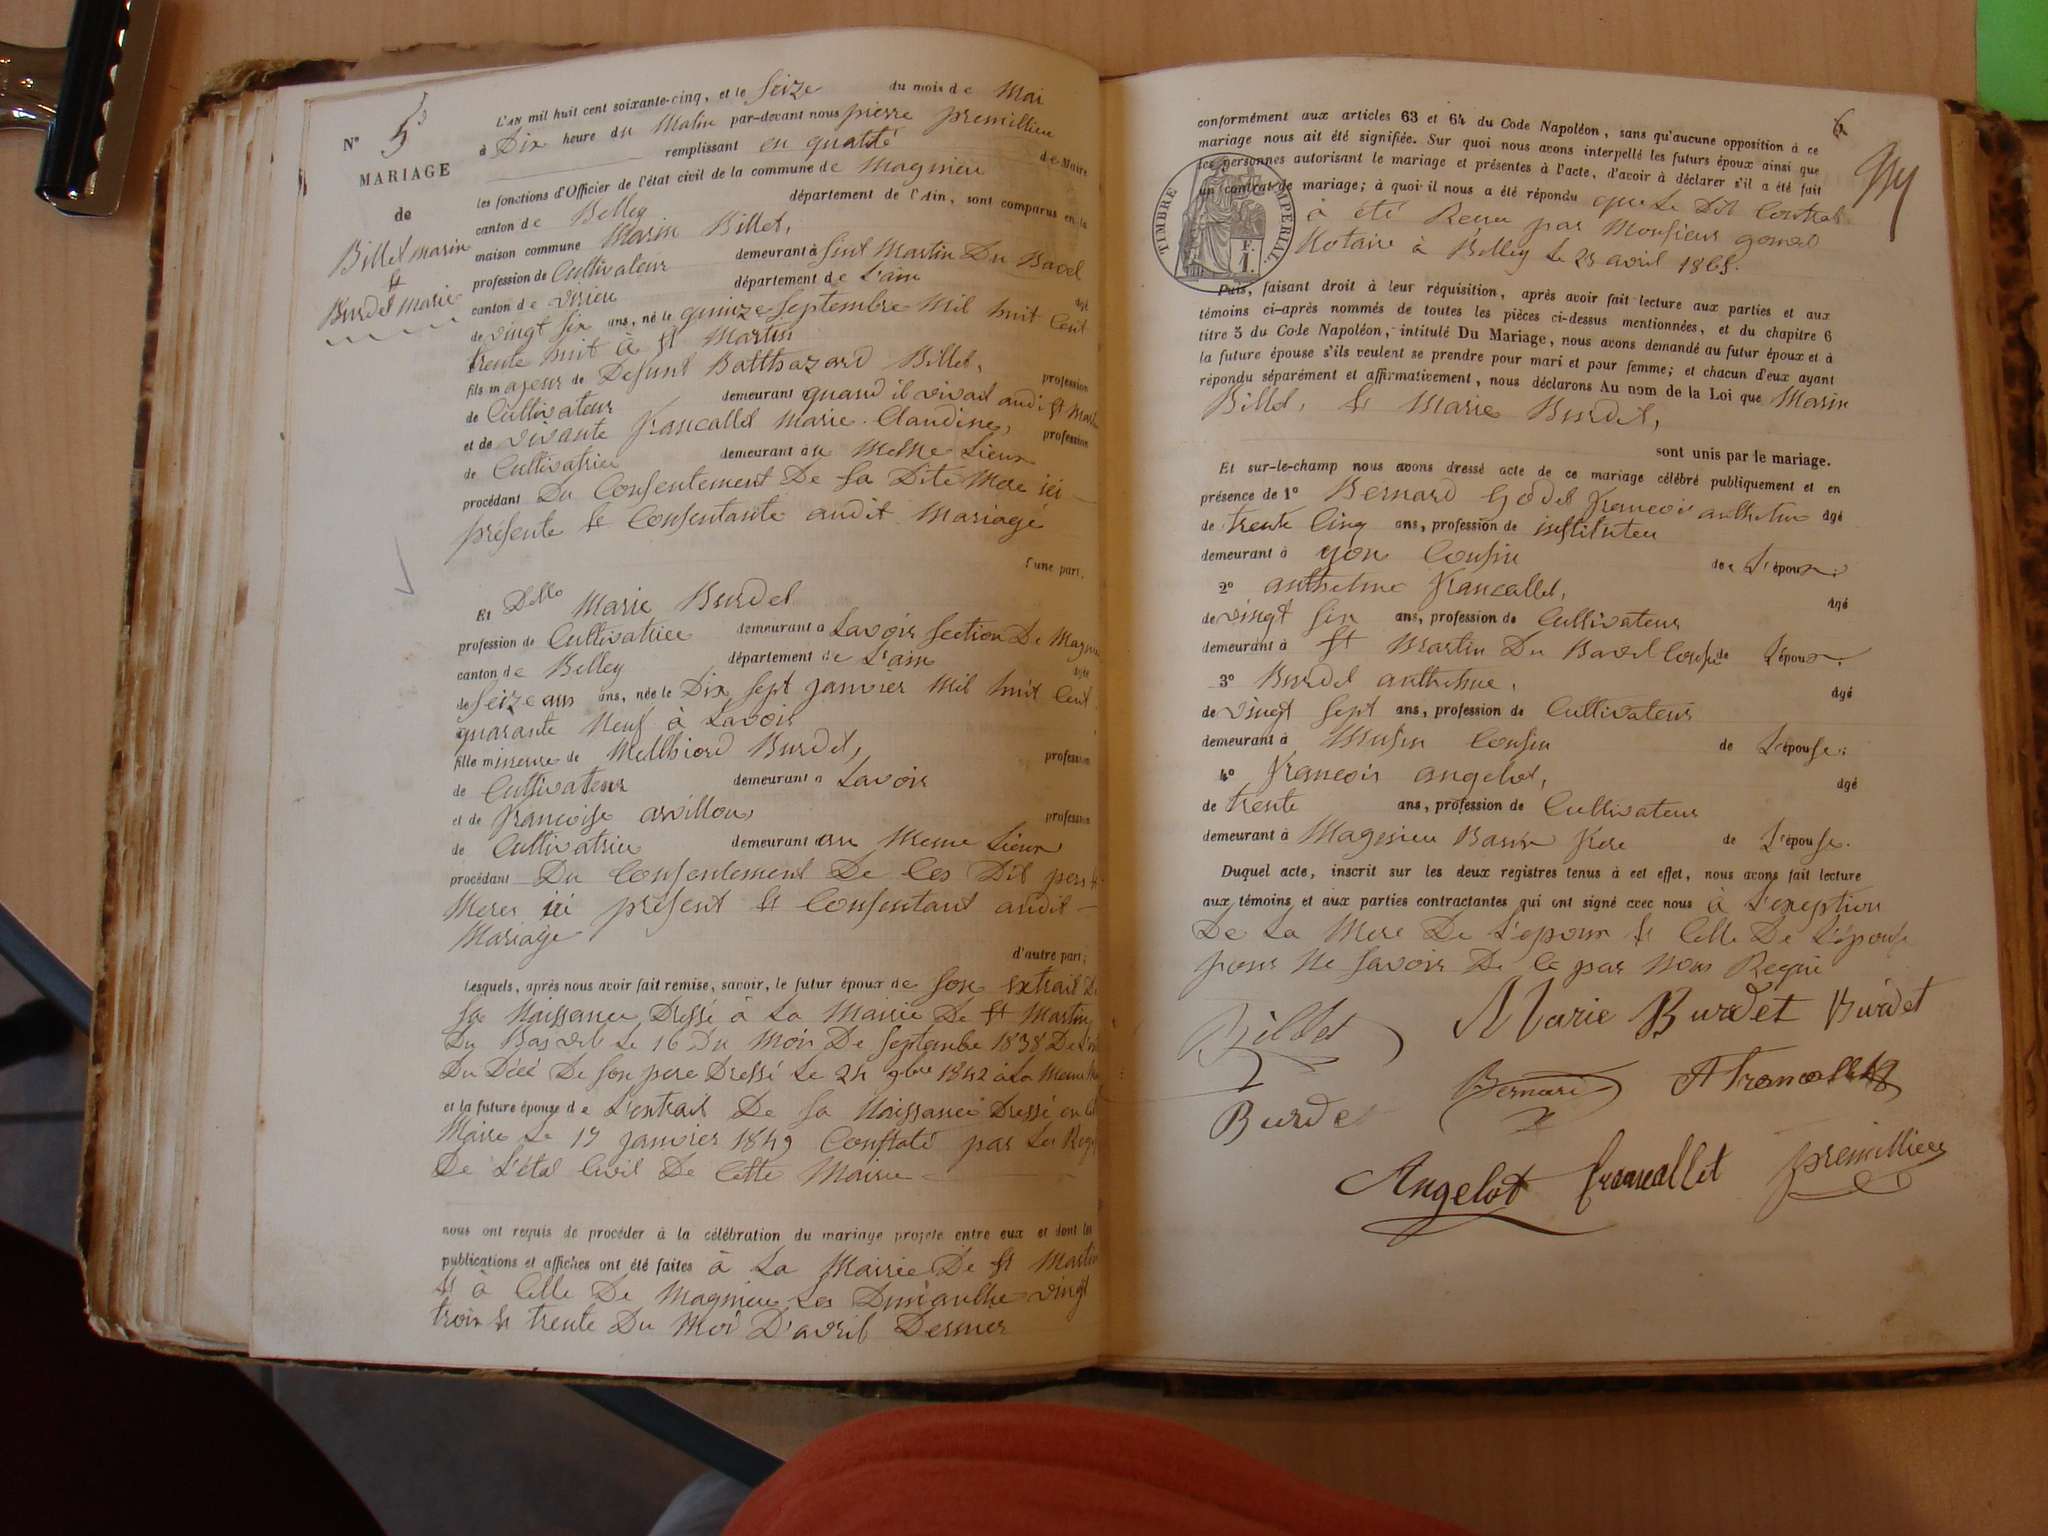 N° 5
MARIAGE
de
Billet marin
et
Burdet marie
L'AN mil huit cent soixante-cinq, et le Seize du mois de Mai
à Dix heure du Matin par-devant nous pierre premillieu
remplissant en qualité de Maire
les fonctions d'Officier de l'état civil de la commune de Magnieu
canton de Belley département de l'Ain, sont comparus en la
maison commune Marin Billet,
profession de Cultivateur demeurant à Sint Martin Du Bavel
canton de virieu département de L'ain âgé
de vingt six ans, né le quinze Septembre Mil huit Cent
trente huit à St Martin
fils majeur de Defunt Balthazard Billet, profession
de Cultivateur demeurant quand il vivait audi St Martin
et de vivante francallet Marie Claudine, profession
de Cultivatrice demeurant au Meme Lieux
procédant Du Consentement De Sa Dite Mere ici
présente et Consentante audit Mariage
d'une part.
Et Delle Marie Burdet
profession de Cultivatrice demeurant à Lavoir Section De Magnieu
canton de Belley département de L'ain âgée
de Seize ans ans, née le Dix Sept janvier Mil huit Cent
quarante Neuf à Lavoir
fille mineure de Melchiord Burdet, profession
de Cultivateur demeurant à Lavoir
et de francoise arvillon, profession
de Cultivatrice demeurant au Meme Lieux
procédant Du Consentement De Ces Dit pers et
Meres ici présent et Consentant audit
Mariage
d'autre part;
Lesquels, après nous avoir fait remise, savoir, le futur époux de Son extrait De
Sa Naissance Dressé à La Mairie De St Martin
Du Bavel Le 16 Du Mois De Septembre 1838
Du Décé De Son pere Dressé Le 24 9bre 1842 à La Meme
et la future épouse de L'extrait De Sa Naissance Dressé en
Mairie Le 17 janvier 1849 Constaté par Les Reg
De L'état Civil De Cette Mairie
nous ont requis de procéder à la célébration du mariage projeté entre eux et dont les
publications et affiches ont été faites à La Mairie De St Martin
et à Celle De Magnieu Les Dimanche vingt
trois et trente Du Moi D'avril Dernier
6
conformément aux articles 63 et 64 du Code Napoléon, sans qu'aucune opposition à ce
mariage nous ait été signifiée. Sur quoi nous avons interpellé les futurs époux ainsi que
les personnes autorisant le mariage et présentes à l'acte, d'avoir à déclarer s'il a été fait
un contrat de mariage; à quoi il nous a été répondu que Le Dit Contrat
à été Recu par Monsieur gomet
Notaire à Belley Le 23 avril 1865.
TIMBRE IMPERIAL
1 F.
Puis, faisant droit à leur réquisition, après avoir fait lecture aux parties et aux
témoins ci-après nommés de toutes les pièces ci-dessus mentionnées, et du chapitre 6
titre 5 du Code Napoléon, intitulé Du Mariage, nous avons demandé au futur époux et à
la future épouse s'ils veulent se prendre pour mari et pour femme; et chacun d'eux ayant
répondu séparément et affirmativement, nous déclarons Au nom de la Loi que Marin
Billet, et Marie Burdet,
sont unis par le mariage.
Et sur-le-champ nous avons dressé acte de ce mariage célébré publiquement et en
présence de 1° Bernard Godet francois anthelme âgé
de trente Cinq ans, profession de instituteu
demeurant à yon Cousin de L'époux;
2° anthelme francallet, âgé
de vingt Six ans, profession de Cultivateur
demeurant à St Martin Du Bavel Cousin de L'époux.
3° Burdet anthelme, âgé
de vingt Sept ans, profession de Cultivateur
demeurant à Cousin de L'épouse;
4° francois angelot, âgé
de trente ans, profession de Cultivateur
demeurant à Magnieu Baux frere de L'épouse.
Duquel acte, inscrit sur les deux registres tenus à cet effet, nous avons fait lecture
aux témoins et aux parties contractantes qui ont signé avec nous à L'exeption
De La Mere De L'epoux et Celle De L'épouse
pour Ne Savoir De Ce par Nous Requi
Billet Marie Burdet Burdet
Burdet Bernard A francallet
Angelot francallet premillieu